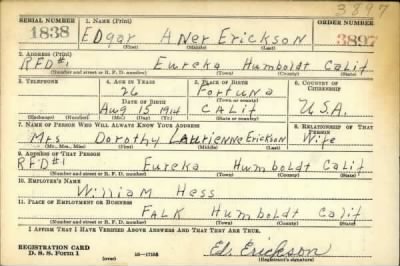 3897
SERIAL NUMBER 1. NAME (Print) ORDER NUMBER
1838 EDgar ANer Erickson 3897
(First) (Middle) (Last)
2. ADDRESS (Print)
RFD#1 Eureka Humboldt Calif
(Number and street or R. F. D. number) (Town) (County) (State)
3. TELEPHONE 4. AGE IN YEARS 5. PLACE OF BIRTH 6. COUNTRY OF CITIZENSHIP
26 Fortuna
DATE OF BIRTH (Town or county)
Aug 15 1914 CALIF U.S.A.
(Exchange) (Number) (Mo.) (Day) (Yr.) (State or country)
7. NAME OF PERSON WHO WILL ALWAYS KNOW YOUR ADDRESS 8. RELATIONSHIP OF THAT PERSON
Mrs Dorothy LAurienne Erickson Wife
(Mr., Mrs., Miss) (First) (Middle) (Last)
9. ADDRESS OF THAT PERSON
RFD#1 Eureka Humboldt Calif
(Number and street or R. F. D. number) (Town) (County) (State)
10. EMPLOYER'S NAME
William Hess
11. PLACE OF EMPLOYMENT OR BUSINESS
FALK Humboldt Calif
(Number and street or R. F. D. number) (Town) (County) (State)
I AFFIRM THAT I HAVE VERIFIED ABOVE ANSWERS AND THAT THEY ARE TRUE.
REGISTRATION CARD
D. S. S. Form 1 (over) Ed. Erickson
(Registrant's signature)